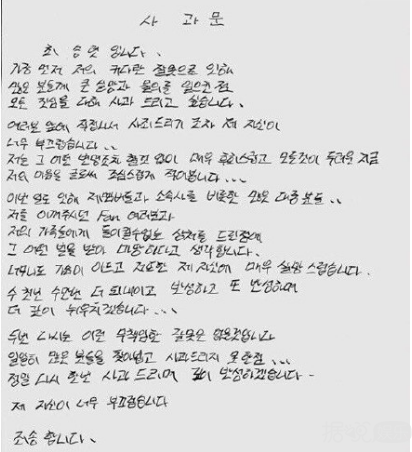 사 과 문
최 승현 입니다.
가장 먼저 저의 커다란 잘못으로 인해
많은 분들께 큰 실망과 물의를 일으킨 점
모든 진심을 다해 사과 드리고 싶습니다.
여러분 앞에 직접나서 사죄드리기 조차 제 자신이
너무 부끄럽습니다...
저는 그 어떤 변명조차 할것 없이 매우 후회스럽고 모든것이 두려운 지금
저의 마음을 글로써 조심스럽게 적어봅니다...
이번 일로 인해 제멤버들과 소속사를 비롯한 많은 다중분들..
저를 아껴주시던 Fan 여러분과
저의 가족들에게 돌이킬수없는 상처를 드린점에
그 어떤 벌을 받아 마땅하다고 생각합니다.
너무나도 가슴이 아프고 제 자신에 매우 실망 스럽습니다.
수 천번 수만번 더 되내이고 반성하고 또 반성하며
더 깊이 뉘우치겠습니다...
두번 다시는 이런 무책임한 잘못은 없을것입니다
일일히 많은 분들을 찾아뵙고 사과드리지 못한점...
정말 다시 한번 사과 드리며 깊이 반성하겠습니다.
제 자신이 너무 부끄럽습니다
죄송 합니다.